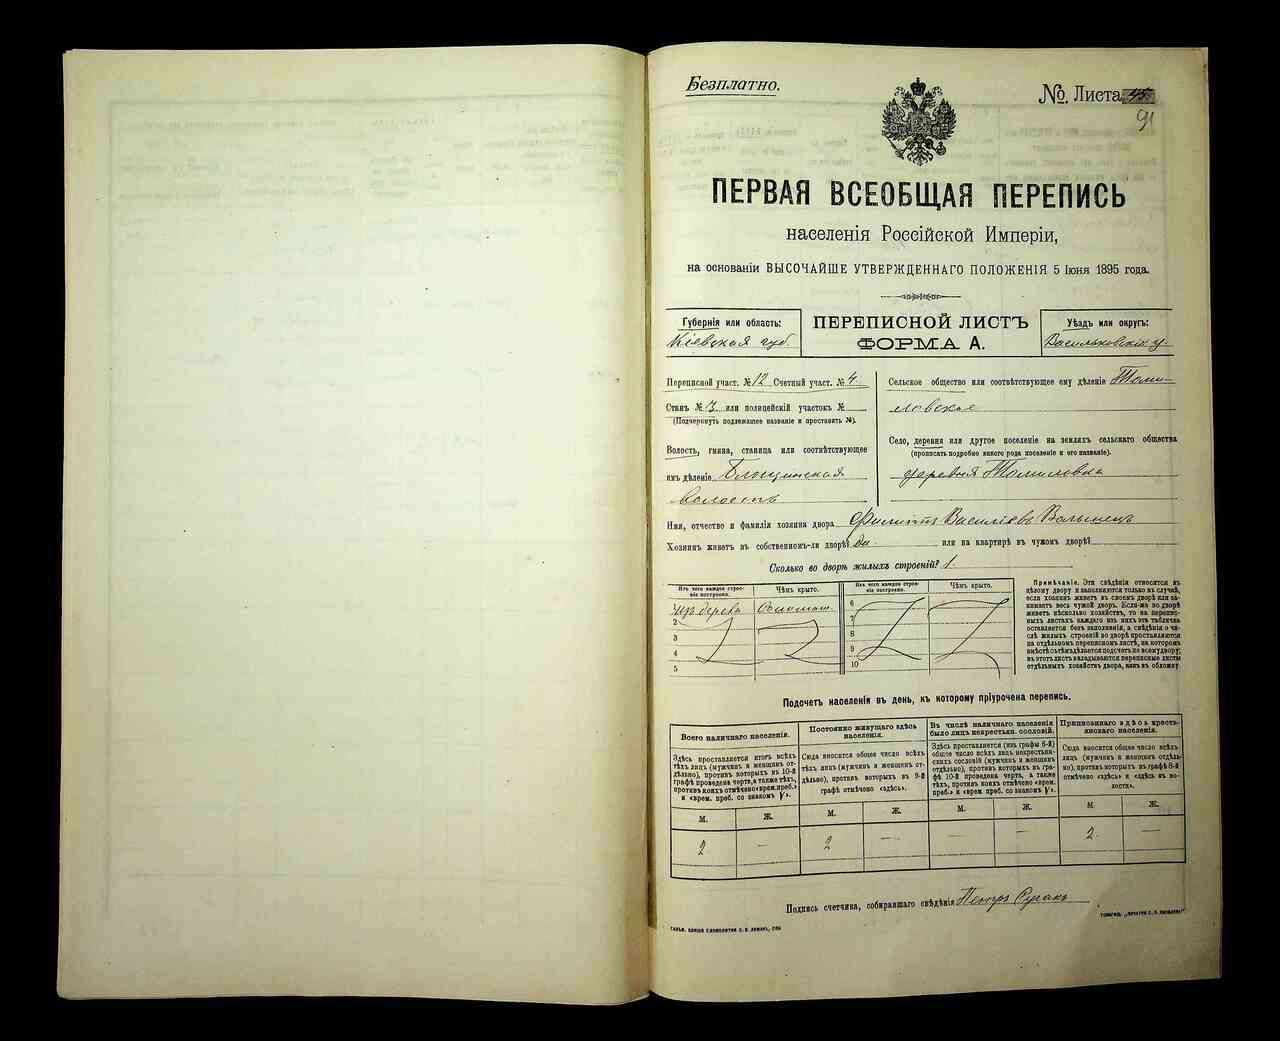 Безплатно.
№ Листа 45
91
ПЕРВАЯ ВСЕОБЩАЯ ПЕРЕПИСЬ
населенія Россійской Имперіи,
на основаніи ВЫСОЧАЙШЕ УТВЕРЖДЕННАГО ПОЛОЖЕНІЯ 5 Іюня 1895 года.
Губернія или область:
Кіевская губ.
ПЕРЕПИСНОЙ ЛИСТЪ
ФОРМА А.
Уѣздъ или округъ:
Васильковскій у.
Переписной участ. № 12 Счетный участ. № 4.
Станъ № 3. или полицейскій участокъ №
(Подчеркнуть подлежащее названіе и проставить №).
Волость, гмина, станица или соотвѣтствующее
имъ дѣленіе
волость
Сельское общество или соотвѣтствующее ему дѣленіе Томи-
ловское
Село, деревня или другое поселеніе на земляхъ сельскаго общества
(прописать подробно какого рода поселеніе и его названіе).
деревня Томиловка
Имя, отчество и фамилія хозяина двора Филиппъ Васильевъ Волынецъ
Хозяинъ живетъ въ собственномъ-ли дворѣ? да. или на квартирѣ въ чужомъ дворѣ?
Сколько во дворѣ жилыхъ строеній? 1.
Изъ чего каждое строе-
ніе построено.
Чѣмъ крыто.
изъ дерева Солом.
2
3
4
5
Изъ чего каждое строе-
ніе построено.
Чѣмъ крыто.
6
7
8
9
10
Примѣчаніе. Эта свѣдѣнія относятся къ
цѣлому двору и заполняются только въ случаѣ,
если хозяинъ живетъ въ своемъ дворѣ или за-
нимаетъ весь чужой дворъ. Если-же во дворѣ
живетъ нѣсколько хозяйствъ, то на перепис-
ныхъ листахъ каждаго изъ нихъ эта табличка
оставляется безъ заполненія, а свѣдѣнія о чи-
слѣ жилыхъ строеній во дворѣ проставляются
на отдѣльномъ переписномъ листѣ, на которомъ
вмѣстѣ съ тѣмъ дѣлается подсчетъ по всему двору;
въ этотъ листъ вкладываются переписные листы
отдѣльныхъ хозяйствъ двора, какъ въ обложку.
Подсчетъ населенія въ день, къ которому пріурочена перепись.
Всего наличнаго населенія.
Здѣсь проставляется итогъ всѣхъ
тѣхъ лицъ (мужчинъ и женщинъ от-
дѣльно), противъ которыхъ въ 10-й
графѣ проведена черта, а также тѣхъ,
противъ коихъ отмѣчено «врем. преб.»
и «врем. преб. со знакомъ V».
М. Ж.
2 —
Постоянно живущаго здѣсь
населенія.
Сюда вносится общее число всѣхъ
тѣхъ лицъ (мужчинъ и женщинъ от-
дѣльно), противъ которыхъ въ 9-й
графѣ отмѣчено «здѣсь».
М. Ж.
2 —
Въ числѣ наличнаго населенія
было лицъ некрестьян. сословій.
Здѣсь проставляется (изъ графы 6-й)
общее число всѣхъ лицъ некрестьян-
скихъ сословій (мужчинъ и женщинъ
отдѣльно), противъ которыхъ въ гра-
фѣ 10-й проведена черта, а также
тѣхъ, противъ коихъ отмѣчено «врем.
преб.» и «врем. преб. со знакомъ V».
М. Ж.
— —
Приписаннаго здѣсь кресть-
янскаго населенія.
Сюда вносится общее число всѣхъ
лицъ (мужчинъ и женщинъ отдѣль-
но), противъ которыхъ въ графѣ 8-й
отмѣчено «здѣсь» и «здѣсь въ во-
лости».
М. Ж.
2. —
Подпись счетчика, собиравшаго свѣдѣнія Петръ